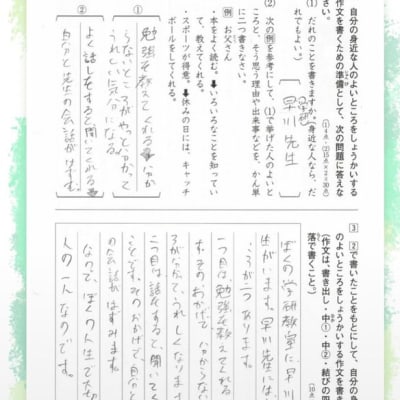 自分の身近な人のよいところをしょうかいする
作文を書くための準備として、次の問題に答えな
さい。
(1)4点・(2)15点×2=30点
(1) だれのことを書きますか。(身近な人なら、だ
れでもよい。)
早川先生
(2) 次の例を参考にして、(1)で挙げた人のよいと
ころと、そう思う理由や出来事などを、かん単
に二つ書きなさい。
例 お父さん
・本をよく読む。➡いろいろなことを知ってい
て、教えてくれる。
・スポーツが得意。➡休みの日には、キャッチ
ボールをしてくれる。
①
勉強を教えてくれる➡分か
らないところがやっと分かって
うれしい気分になる
②
よく話しをすると聞いてくれる➡
自分と先生の会話がはずむ
3 2で書いたことをもとにして、自分の身
のよいところをしょうかいする作文を書き
(作文は、書き出し・中①・中②・結びの四
落で書くこと。)
10点
ぼくの学研教室に、早川
生がいます。早川先生には、
ころが二つあります。
一つ目は勉強を教えてくれる
す。そのおかげで、分からない
ろが分かて、うれしくなりま
二つ目は話をすると、聞いてく
ことです。そのおかげで、自分と
の会話がはずみます。
なので、ぼくの人生で大切
人の一人なのです。